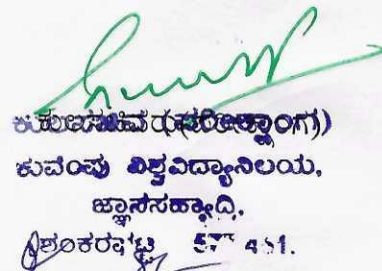 ಕುಲಸಚಿವರು(ಪರೀಕ್ಷಾಂಗ)
ಕುವೆಂಪು ವಿಶ್ವವಿದ್ಯಾನಿಲಯ,
ಜ್ಞಾನಸಹ್ಯಾದ್ರಿ,
ಶಂಕರಘಟ್ಟ 577 451.